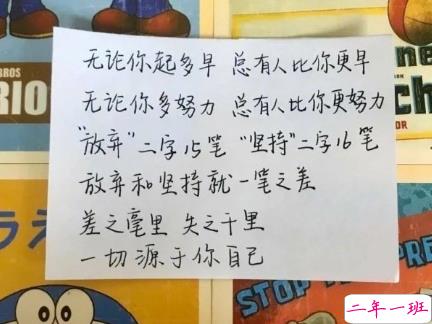 无论你起多早 总有人比你更早
无论你多努力 总有人比你更努力
"放弃"二字15笔 "坚持"二字16笔
放弃和坚持就一笔之差
差之毫里 失之千里
一切源于你自己
BROS
RIO
ne
ch
FOR
ラえ
STOP THE PRE
二年一班